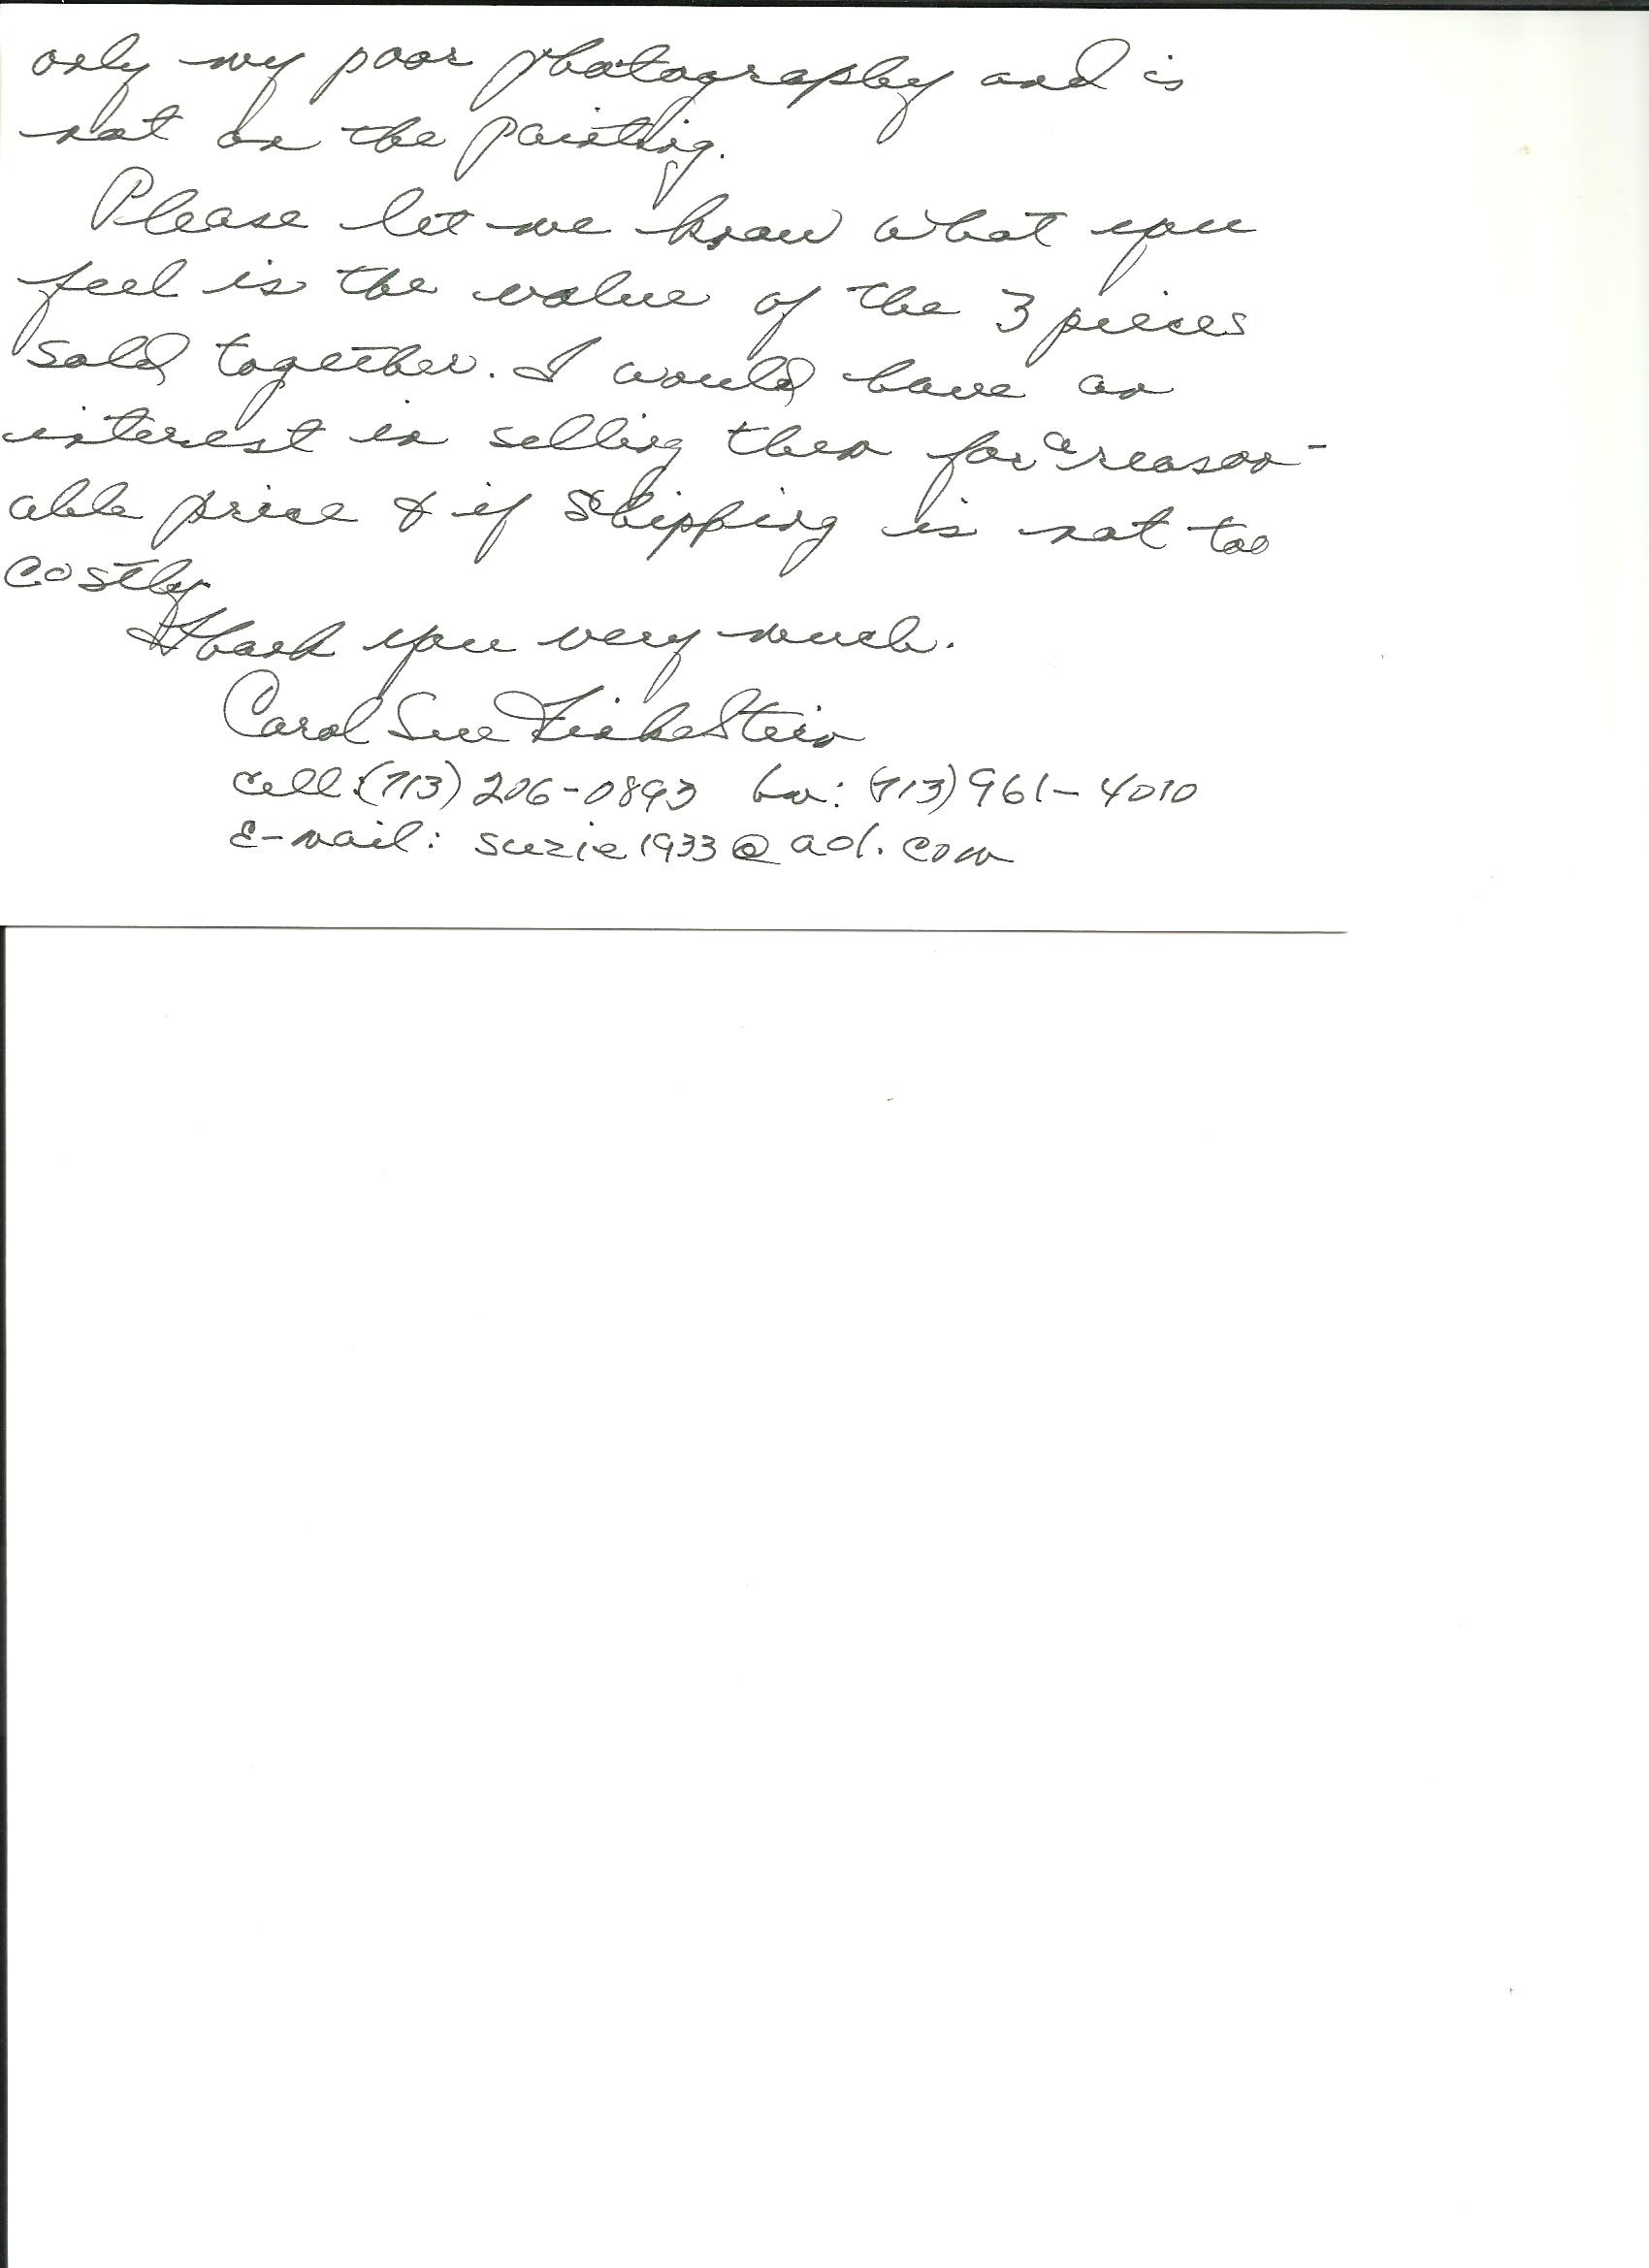 only my poor photography and is
not on the painting.
Please let me know what you
feel is the value of the 3 pieces
sold together. I would have an
interest in selling them for a reason-
able price & if shipping is not too
costly.
Thank you very much.
Carol Sue Finkelstein
cell: (713) 206-0893 hm: (713) 961-4010
E-mail: suzie1933@aol.com